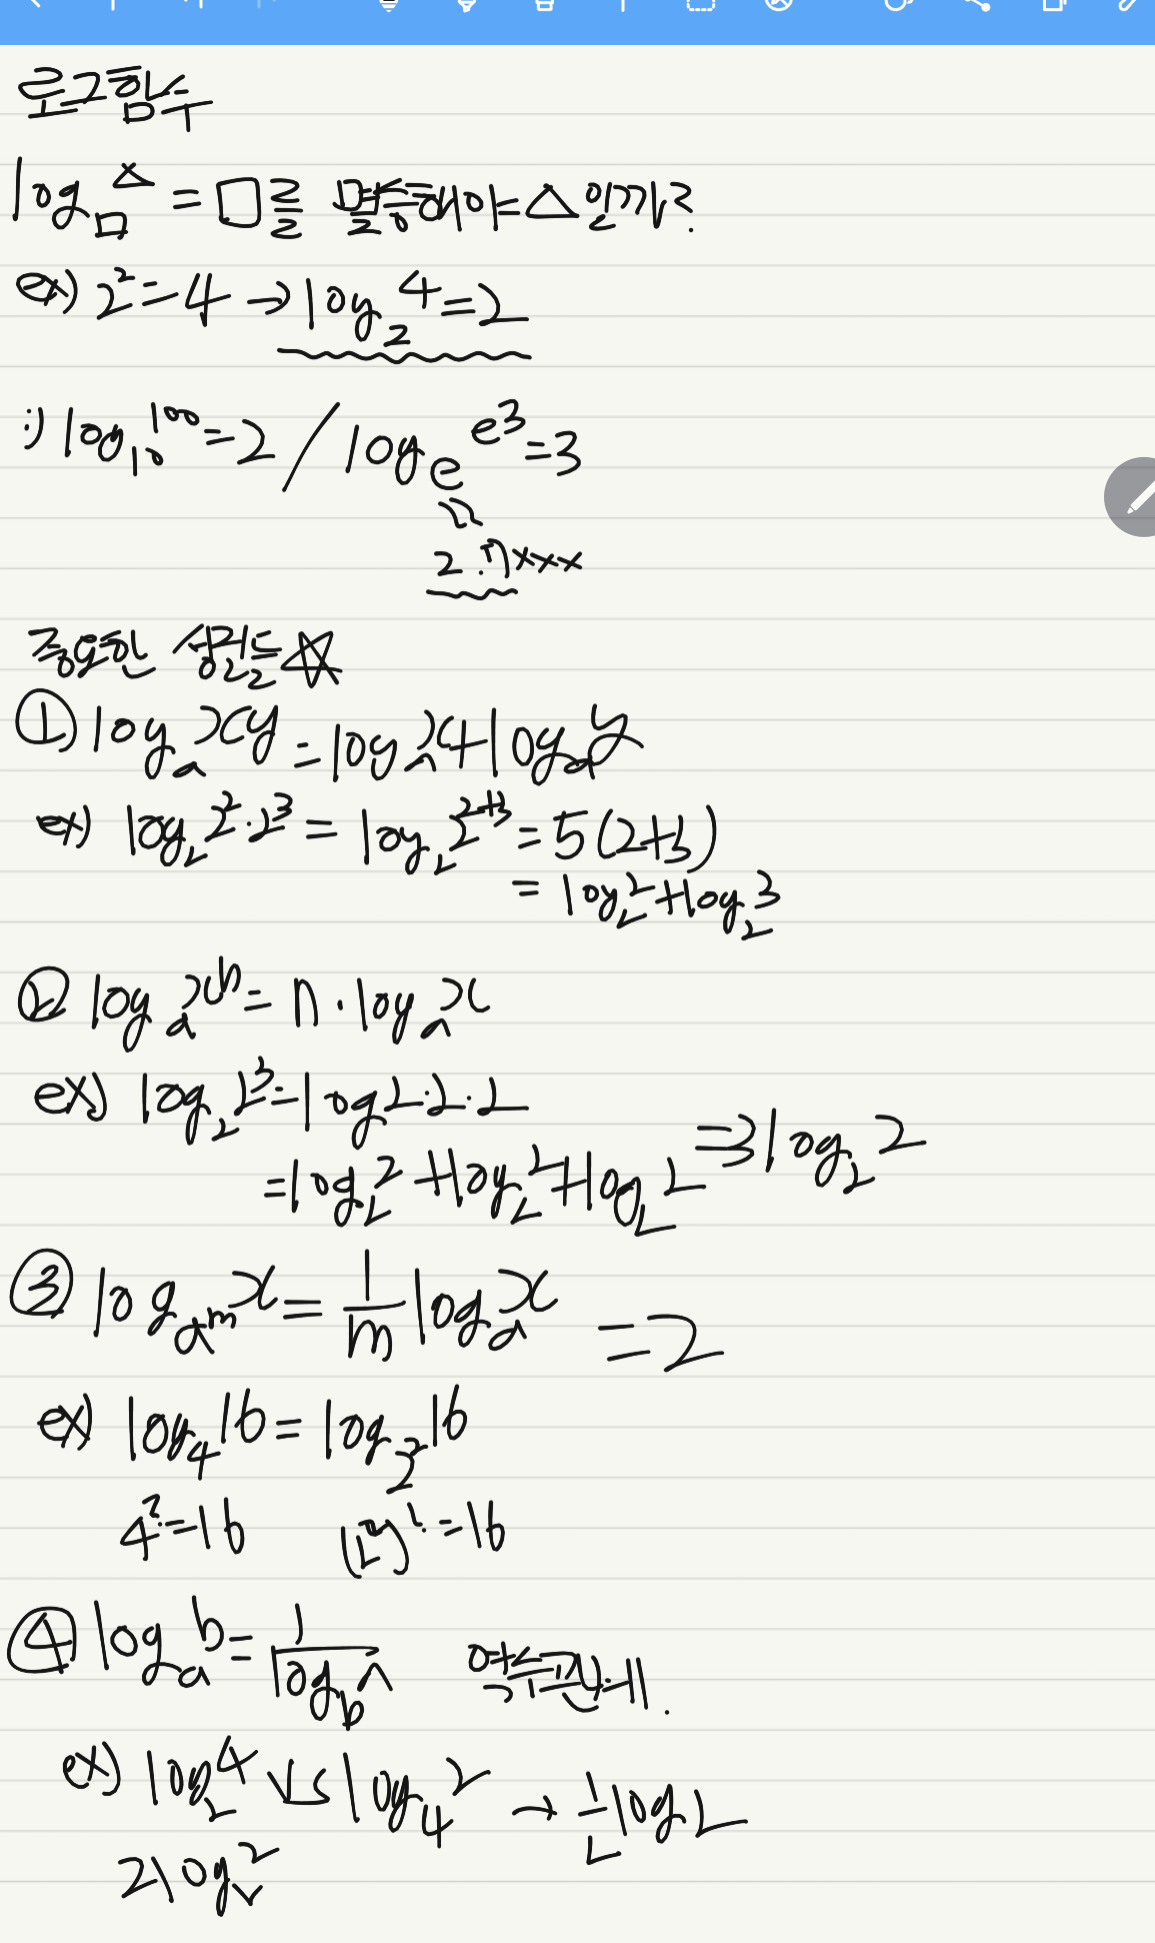 로그함수
log□△ = □를 몇승해야 △일까?
ex) 2²=4 → log₂4=2
i) log₁₀100=2 / logₑe³=3
2.7xxx
중요한 성질들☆
① logₐxy = logₐx+logₐy
ex) log₂2²·2³ = log₂2²⁺³ = 5(2+3)
= log₂2+log₂3
② logₐxⁿ = n·logₐx
ex) log₂2³=log2·2·2
=log₂2+log₂2+log₂2 =3log₂2
③ log_{a^m}x = 1/m logₐx
=2
ex) log₄16 = log_{2²}16
4²=16 (2²)²=16
④ logₐb = 1/log_b a 역수관계.
ex) log₂4 vs log₄2 → 1/2 log2
2log₂2